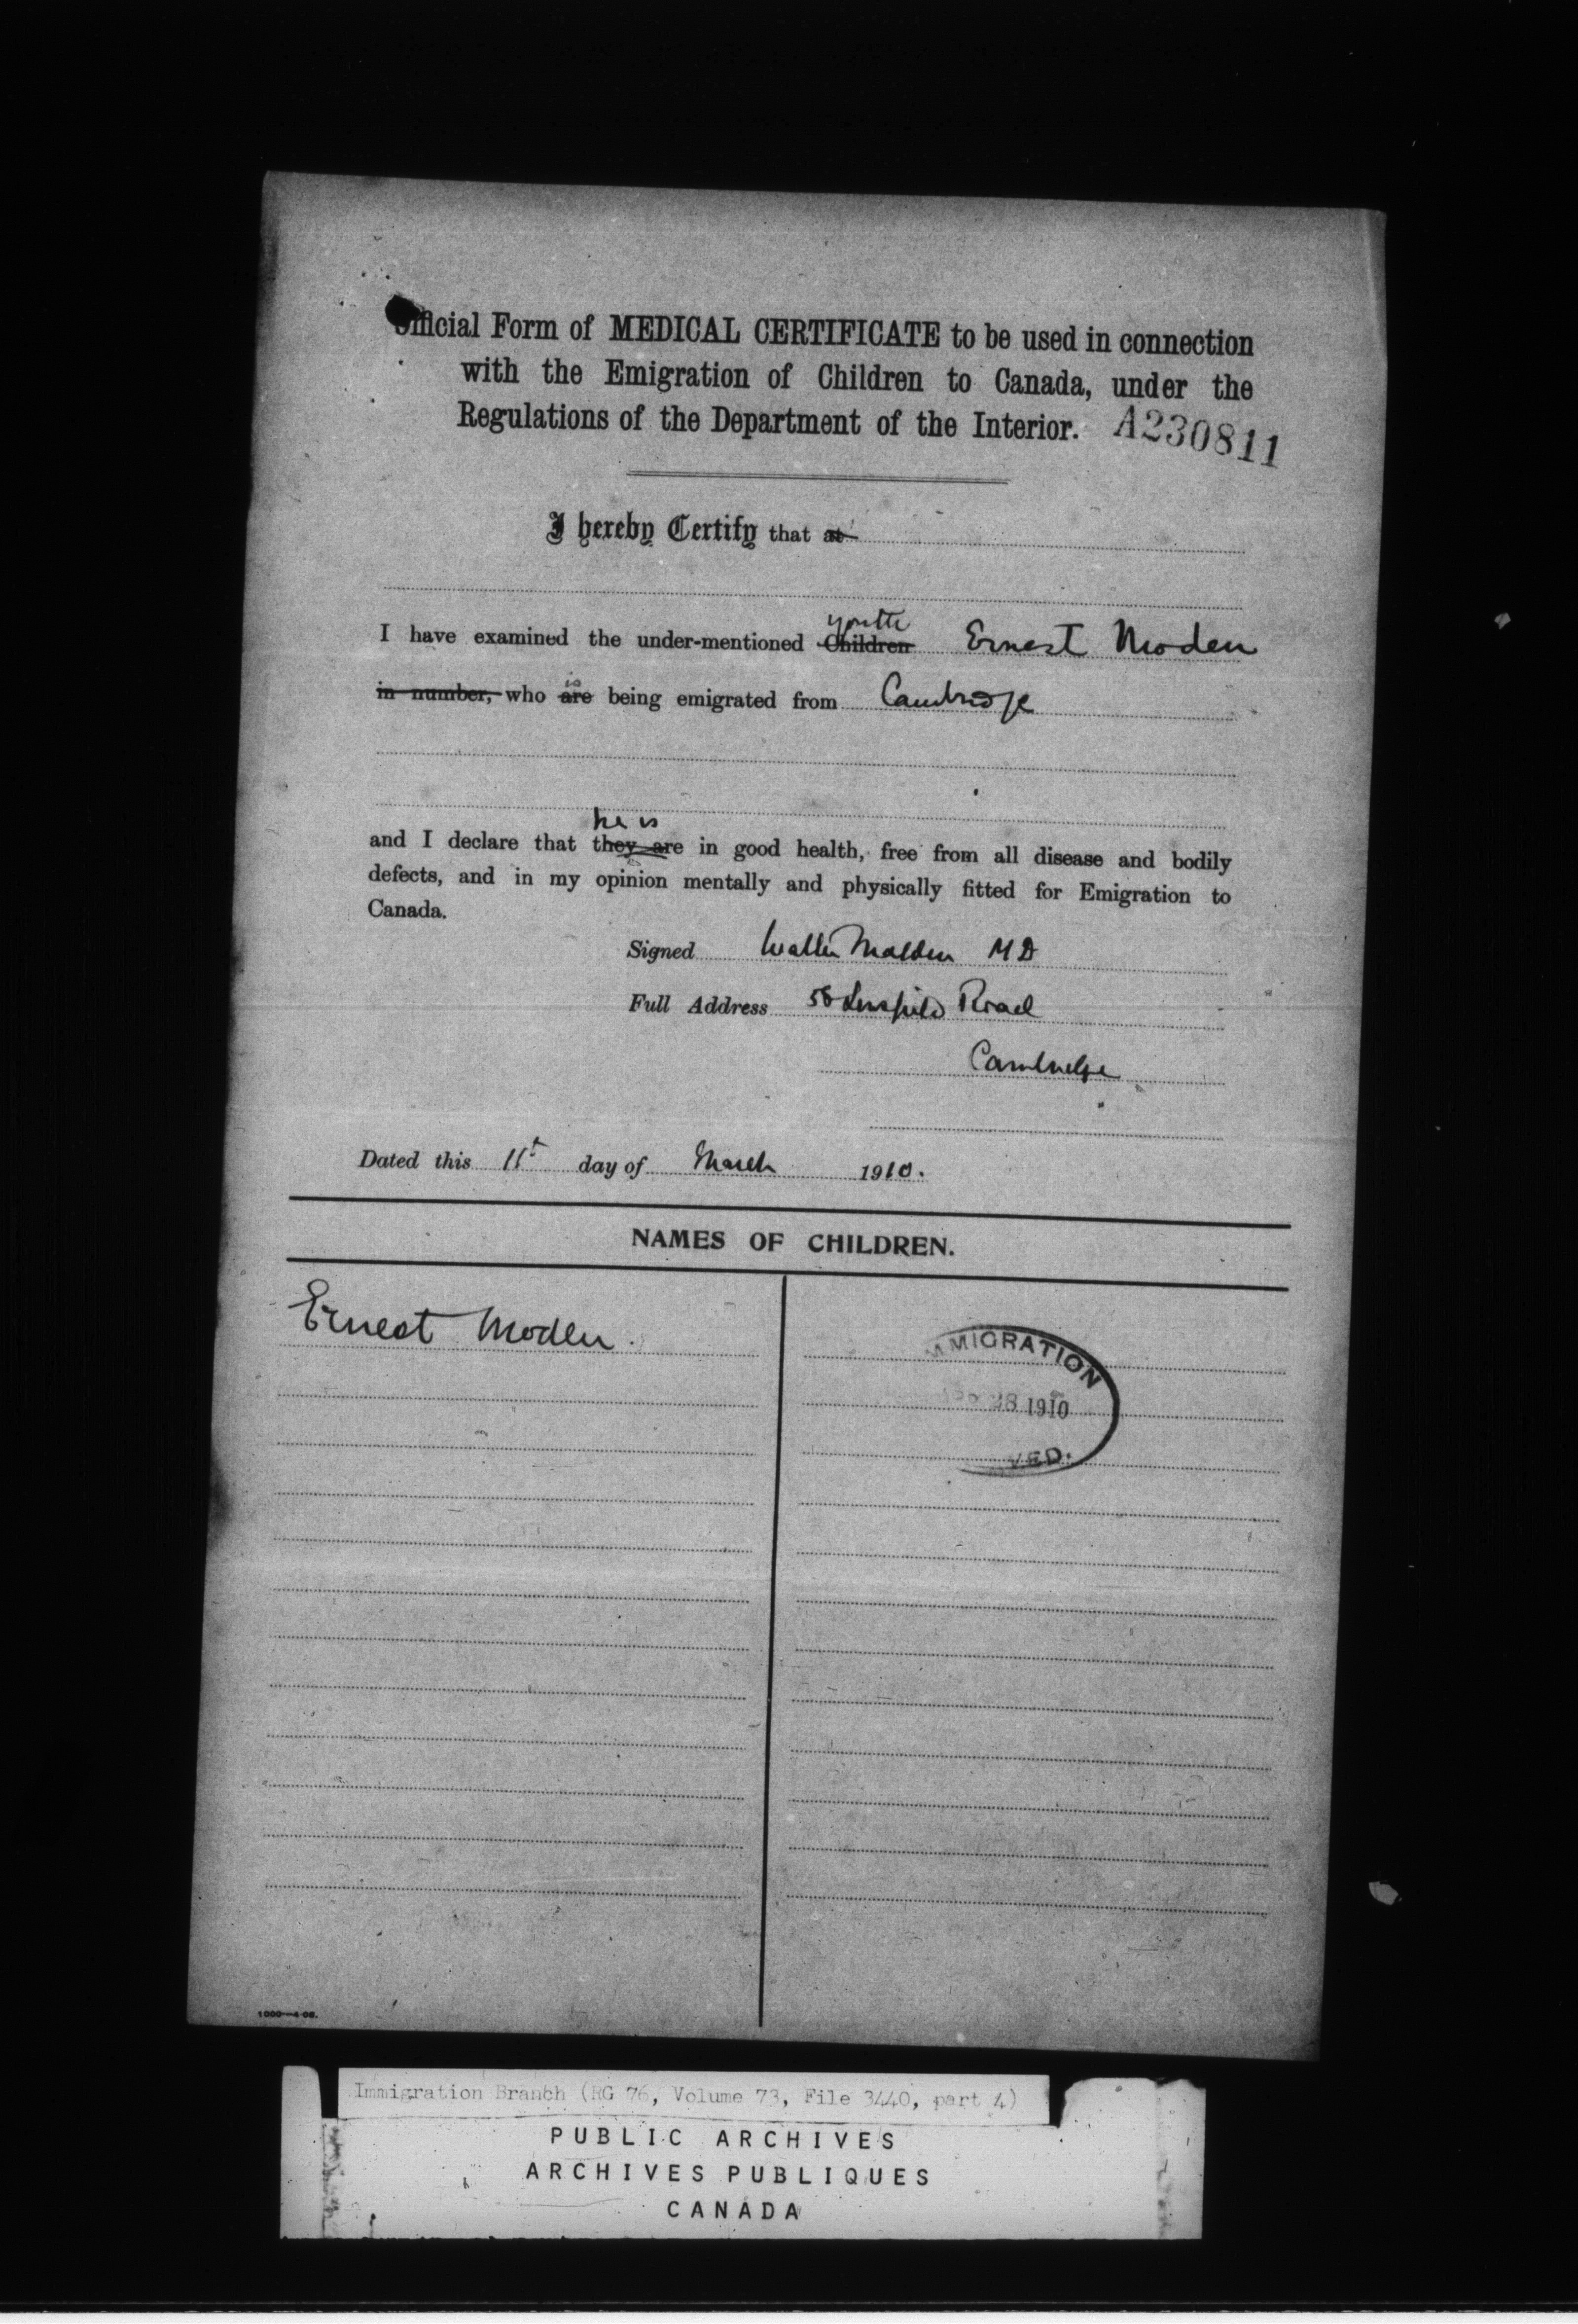 Official Form of MEDICAL CERTIFICATE to be used in connection
with the Emigration of Children to Canada, under the
Regulations of the Department of the Interior. A230811
I hereby Certify that at
youth
I have examined the under-mentioned Children Ernest Moden
is
in number, who are being emigrated from Cambridge
he is
and I declare that they are in good health, free from all disease and bodily
defects, and in my opinion mentally and physically fitted for Emigration to
Canada.
Signed Walter Malden MD
Full Address Lensfield Road
Cambridge
Dated this 11t day of March 1910.
NAMES OF CHILDREN.
Ernest Moden.
MMIGRATION
28 1910
VED.
1000—4-09.
Immigration Branch (RG 76, Volume 73, File 3440, part 4)
PUBLIC ARCHIVES
ARCHIVES PUBLIQUES
CANADA